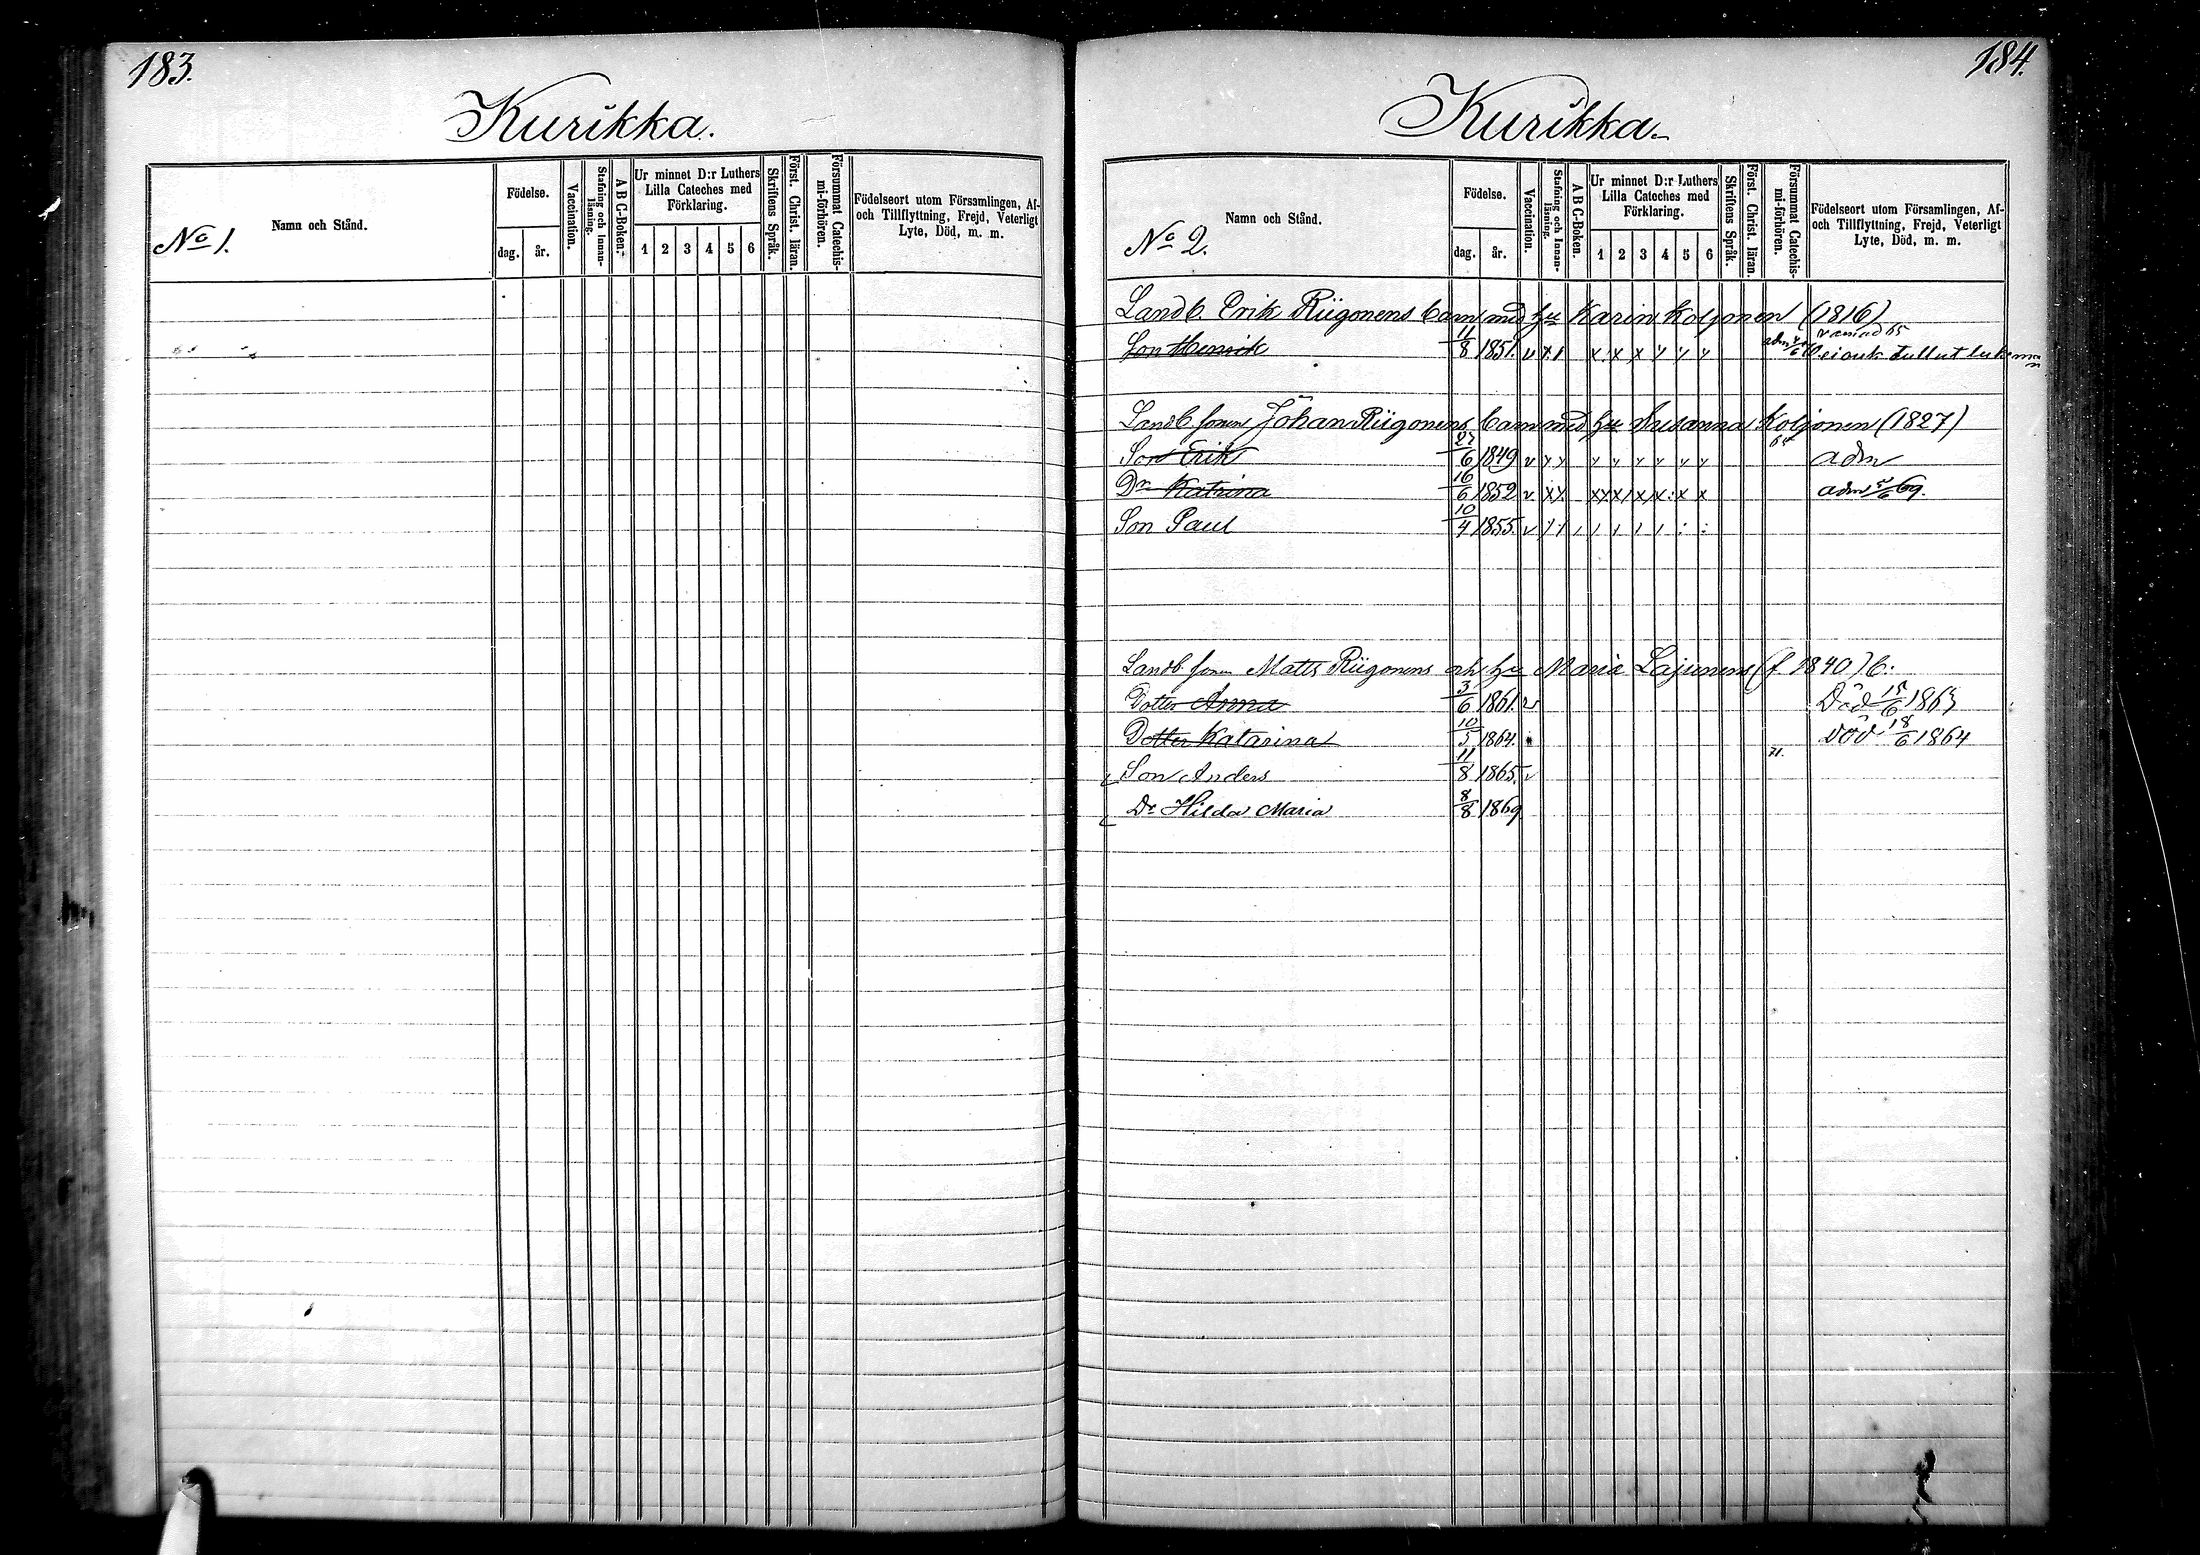 183.
Kurikka.
No 1.
Namn och Stånd.
Födelse.
dag. år.
Vaccination.
Stafning och Innanläsning.
A B C-Boken.
Ur minnet D:r Luthers Lilla Cateches med Förklaring.
1 2 3 4 5 6
Skriftens Språk.
Först. Christ. läran.
Försummat Catechismi-förhören.
Födelseort utom Församlingen, Af- och Tillflyttning, Frejd, Veterligt Lyte, Död, m. m.
184.
Kurikka.
No 2.
Namn och Stånd.
Födelse.
dag. år.
Vaccination.
Stafning och Innanläsning.
A B C-Boken.
Ur minnet D:r Luthers Lilla Cateches med Förklaring.
1 2 3 4 5 6
Skriftens Språk.
Först. Christ. läran.
Försummat Catechismi-förhören.
Födelseort utom Församlingen, Af- och Tillflyttning, Frejd, Veterligt Lyte, Död, m. m.
Landb. Erik Riigonens barn med hu Karin Koljonen (1816)
Son Henrik 11/8 1851. v x x x x x y y y ei ouk tullut lukeman
Landb. sonen Johan Riigonens barn med hu Susanna Koljonen (1827)
Son Erik 27/6 1849 v y y y y y y y y adm
Dr Katrina 16/6 1852 v x x x x x x x x adm 69.
Son Paul 10/4 1855. v
Landb. sonen Matts Riigonens och hu Maria Lajunens (f. 1840) b:
Dotter Anna 3/6 1861. v Död 15/6 1863
Dotter Katarina 10/5 1864. Död 18/6 1864
71.
Son Anders 11/8 1865. v
Dr Hilda Maria 8/8 1869